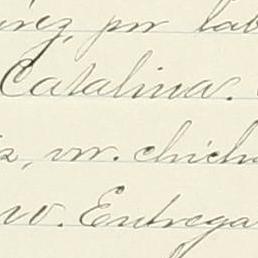 por lab
Catalina.
vn. chich
vo. Entrega